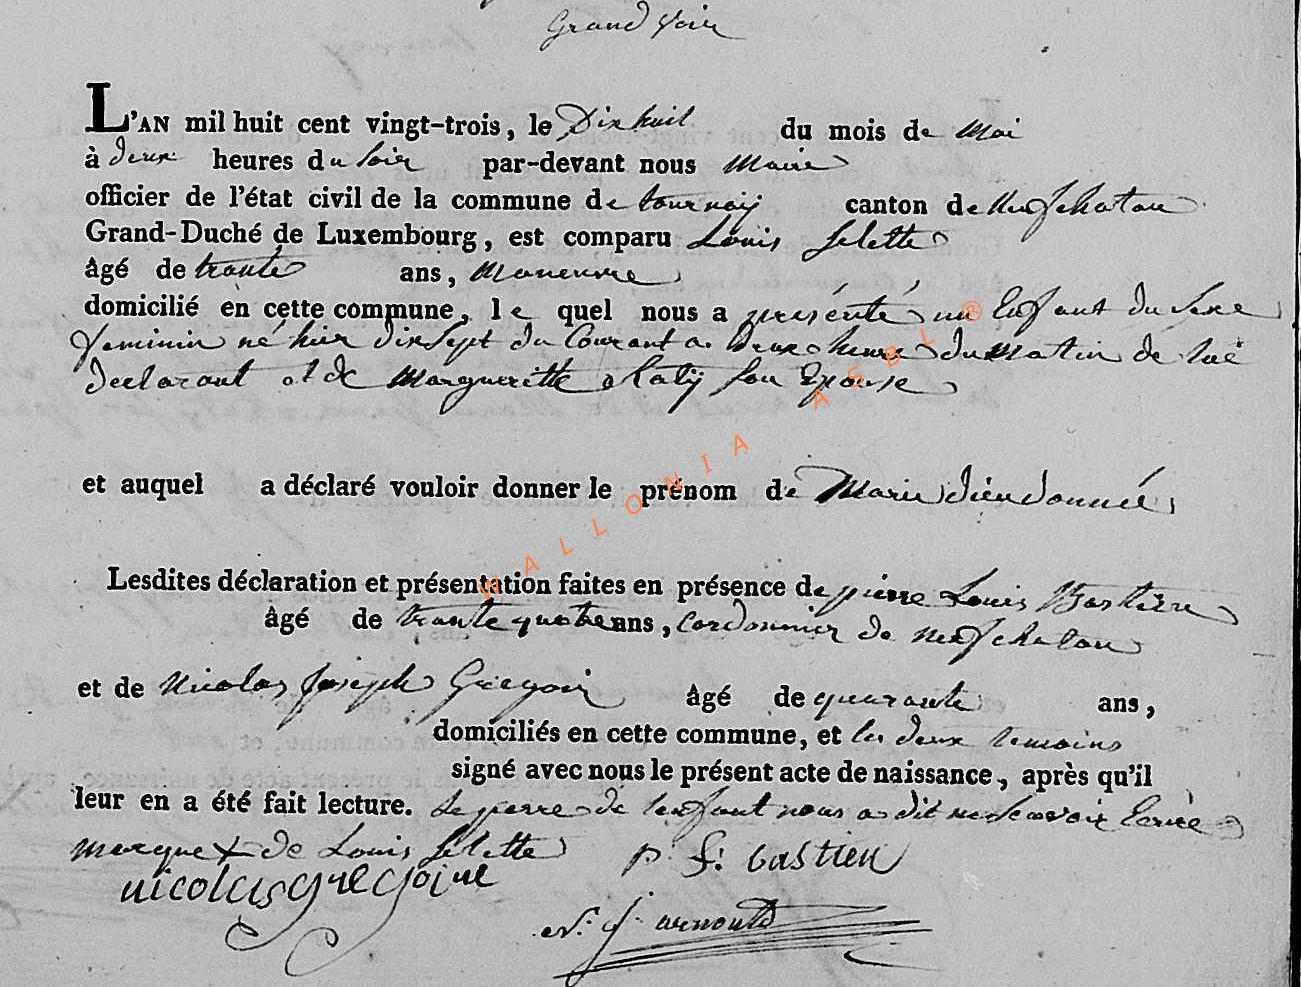 Grand Voir
L'AN mil huit cent vingt-trois, le Dixhuit du mois de Mai
à deux heures du soir par-devant nous Maire
officier de l'état civil de la commune de tournay canton de Neufchatau
Grand-Duché de Luxembourg, est comparu Louis Selette
âgé de trante ans, Maneuvre
domicilié en cette commune, le quel nous a présenté un Enfant du Sexe
feminin né hier dixsept du Courant a deux heures du Matin de lui
declarant et de Margueritte son Epouse
et auquel a déclaré vouloir donner le prénom de Marie dieudonnée
Lesdites déclaration et présentation faites en présence de pierre Louis Bastien
âgé de trante quatre ans, Cordonnier de neufchatau
et de Nicolas Joseph Gregoir âgé de quarante ans,
domiciliés en cette commune, et les deux temoins
signé avec nous le présent acte de naissance, après qu'il
leur en a été fait lecture. Le perre de lenfant nous a dit ne scavoir Ecrire
marque + de Louis Selette P. L: bastien
nicolas gregoire
N. J. arnould
WALLONIA ASBL ®